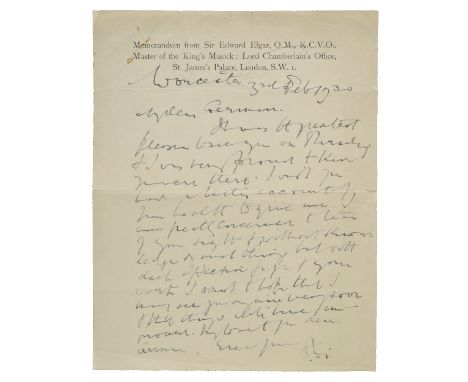 Memorandum from Sir Edward Elgar, O.M., K.C.V.O.,
Master of the King's Musick; Lord Chamberlain's Office,
St. James's Palace, London, S.W. 1.
Worcester 3rd Feb 1930
My dear German.
It was the greatest
pleasure to see you on Thursday
& I was very proud to know
you were there. I wish you
had a better account of
your health to give me. I
am greatly concerned to hear
of your sight
of such things but with
deep affection for you & your
work I want to hope that I
may see you again very soon
& that things will have im-
proved. My love to you dear
Ever yours